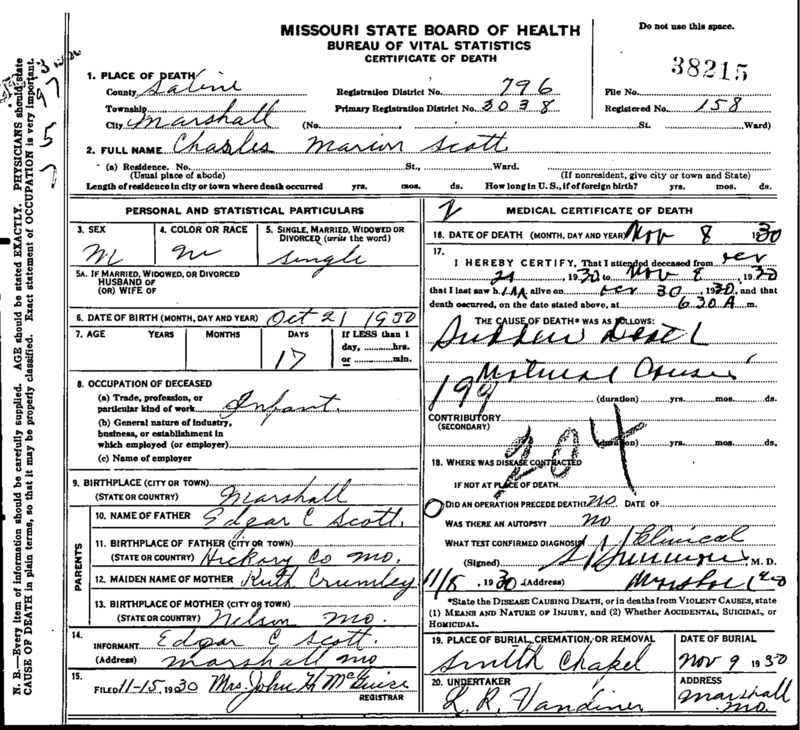 MISSOURI STATE BOARD OF HEALTH
BUREAU OF VITAL STATISTICS
CERTIFICATE OF DEATH
Do not use this space.
38215
1. PLACE OF DEATH
County Saline Registration District No. 796 File No.
Township Primary Registration District No. 3038 Registered No. 158
City Marshall (No. St. Ward)
2. FULL NAME Charles Marion Scott
(a) Residence. No. St., Ward.
(Usual place of abode) (If nonresident, give city or town and State)
Length of residence in city or town where death occurred yrs. mos. ds. How long in U.S., if of foreign birth? yrs. mos. ds.
PERSONAL AND STATISTICAL PARTICULARS
3. SEX 4. COLOR OR RACE 5. SINGLE, MARRIED, WIDOWED OR
DIVORCED (write the word)
M W single
5A. IF MARRIED, WIDOWED, OR DIVORCED
HUSBAND OF
(OR) WIFE OF
6. DATE OF BIRTH (MONTH, DAY AND YEAR) Oct 21 1930
7. AGE YEARS MONTHS DAYS If LESS than 1
day, ........hrs.
or ........min.
17
8. OCCUPATION OF DECEASED
(a) Trade, profession, or
particular kind of work Infant.
(b) General nature of industry,
business, or establishment in
which employed (or employer)
(c) Name of employer
9. BIRTHPLACE (CITY OR TOWN)
(STATE OR COUNTRY) Marshall
PARENTS
10. NAME OF FATHER Edgar C Scott.
11. BIRTHPLACE OF FATHER (CITY OR TOWN)
(STATE OR COUNTRY) Hickory Co Mo.
12. MAIDEN NAME OF MOTHER Ruth Crumley
13. BIRTHPLACE OF MOTHER (CITY OR TOWN)
(STATE OR COUNTRY) Nelson Mo.
14. INFORMANT Edgar C Scott.
(Address) Marshall Mo
15. FILED 11-15, 1930 Mrs. John H McGuire
REGISTRAR
MEDICAL CERTIFICATE OF DEATH
16. DATE OF DEATH (MONTH, DAY AND YEAR) Nov 8 1930
17.
I HEREBY CERTIFY, That I attended deceased from
21, 1930 to Nov 8, 1930
that I last saw h im alive on 30, 1930, and that
death occurred, on the date stated above, at 630 A m.
THE CAUSE OF DEATH* WAS AS FOLLOWS:
Sudden Death
Natural Causes
199
(duration) yrs. mos. ds.
CONTRIBUTORY
(SECONDARY)
(duration) yrs. mos. ds.
204
18. WHERE WAS DISEASE CONTRACTED
IF NOT AT PLACE OF DEATH
DID AN OPERATION PRECEDE DEATH? NO DATE OF
WAS THERE AN AUTOPSY? NO
WHAT TEST CONFIRMED DIAGNOSIS? Clinical
(Signed) M. D.
11/8, 1930 (Address) Marshall Mo
*State the DISEASE CAUSING DEATH, or in deaths from VIOLENT CAUSES, state
(1) MEANS AND NATURE OF INJURY, and (2) Whether ACCIDENTAL, SUICIDAL, or
HOMICIDAL.
19. PLACE OF BURIAL, CREMATION, OR REMOVAL DATE OF BURIAL
Smith Chapel Nov 9 1930
20. UNDERTAKER ADDRESS
L. R. Vandiner Marshall Mo.
N. B.—Every item of information should be carefully supplied. AGE should be stated EXACTLY. PHYSICIANS should state
CAUSE OF DEATH in plain terms, so that it may be properly classified. Exact statement of OCCUPATION is very important.